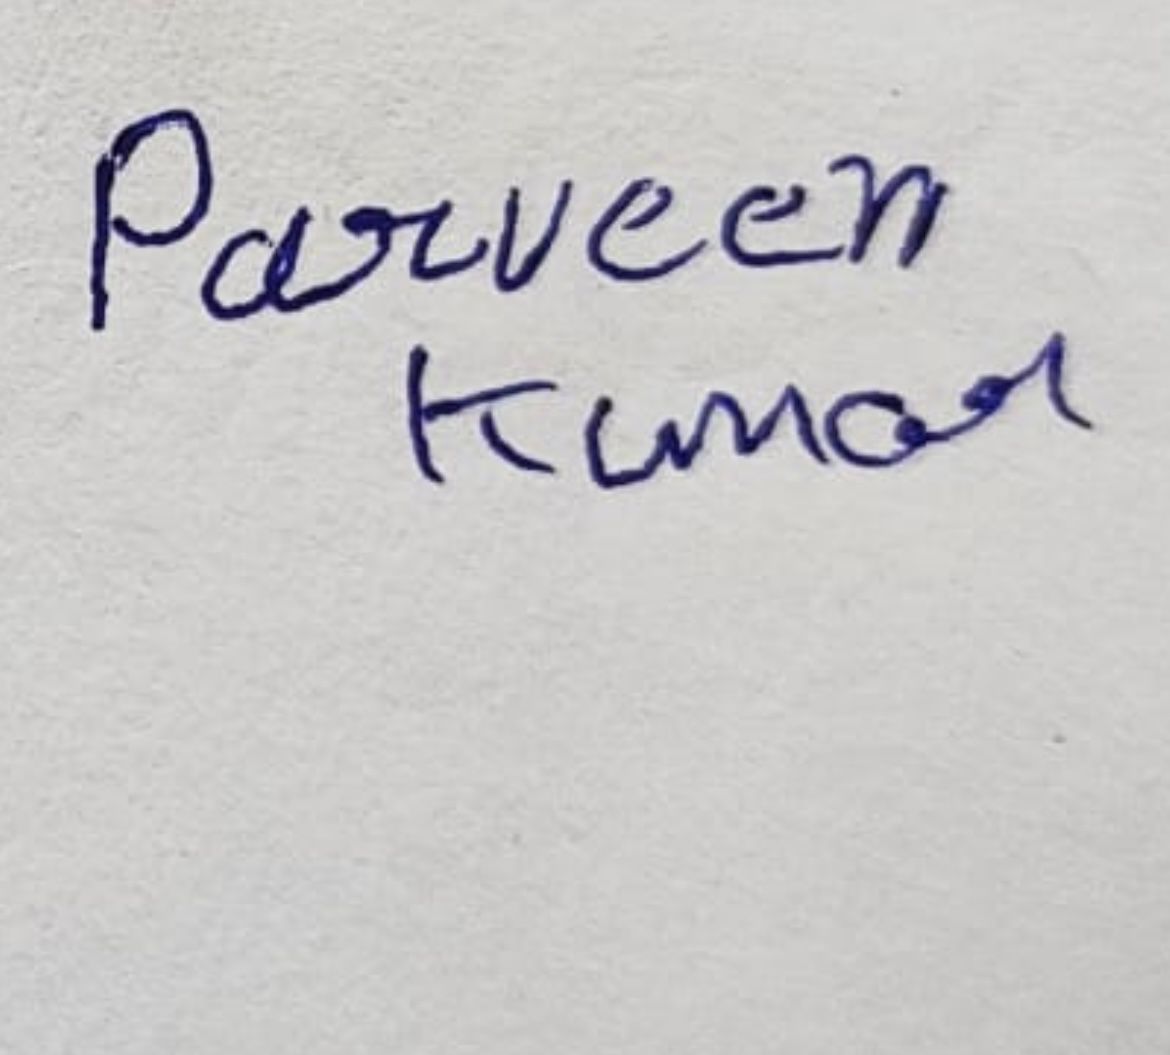 Parveen
Kumar